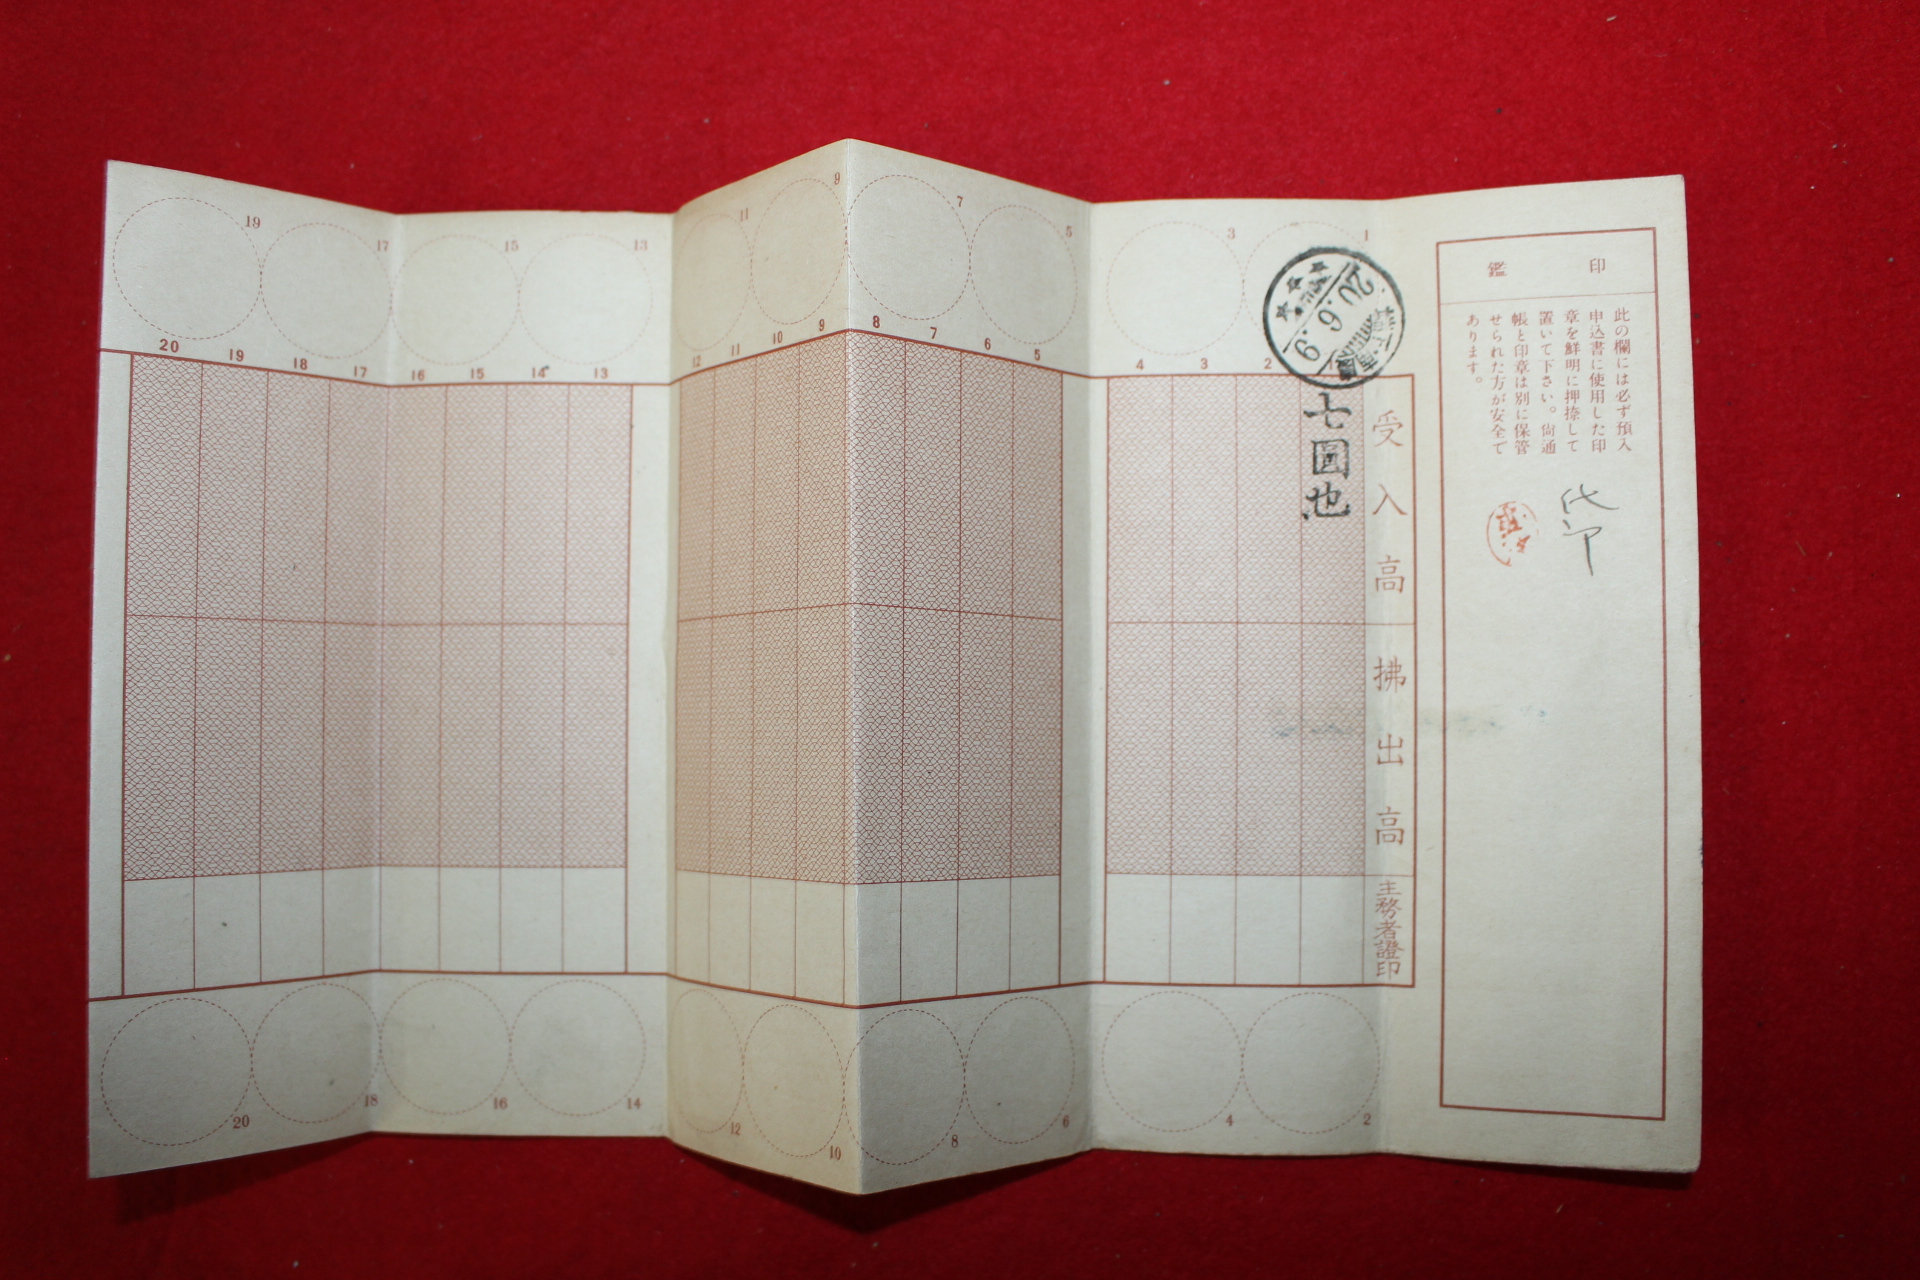 印鑑
此の欄には必ず預入
申込書に使用した印
章を鮮明に押捺して
置いて下さい。尙通
帳と印章は別に保管
せられた方が安全で
あります。
代印
受入高
拂出高
主務者證印
七圓也
20.6.9
1
3
5
7
9
11
13
15
17
19
2
3
4
5
6
7
8
9
10
11
12
13
14
15
16
17
18
19
20
2
4
6
8
10
12
14
16
18
20